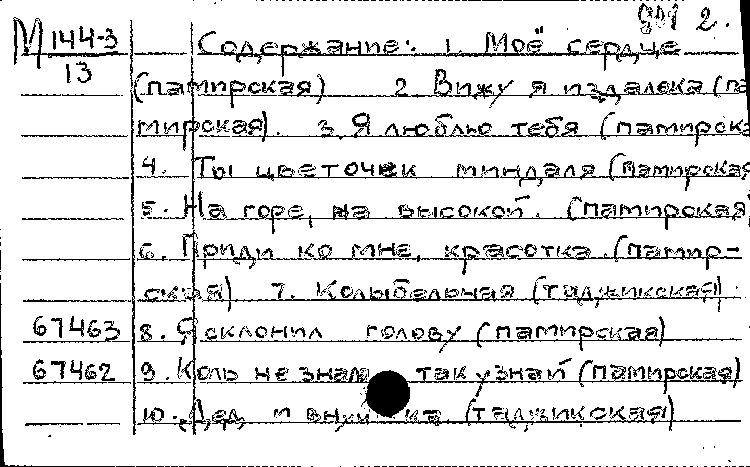 2.
М 144-3
13
Содержание: 1. Моё сердце
(памирская) 2. Вижу я издалека (па
мирская). 3. Я люблю тебя (памирска
4. Ты цветочек миндаля (Памирская
5. На горе, на высокой. (памирская)
6. Приди ко мне, красотка. (памир-
ская) 7. Колыбельная (таджикская).
67463 8. Я склонил голову (памирская)
67462 9. Коль не знала так узнай (памирская)
10. Дед и внучка (таджикская)